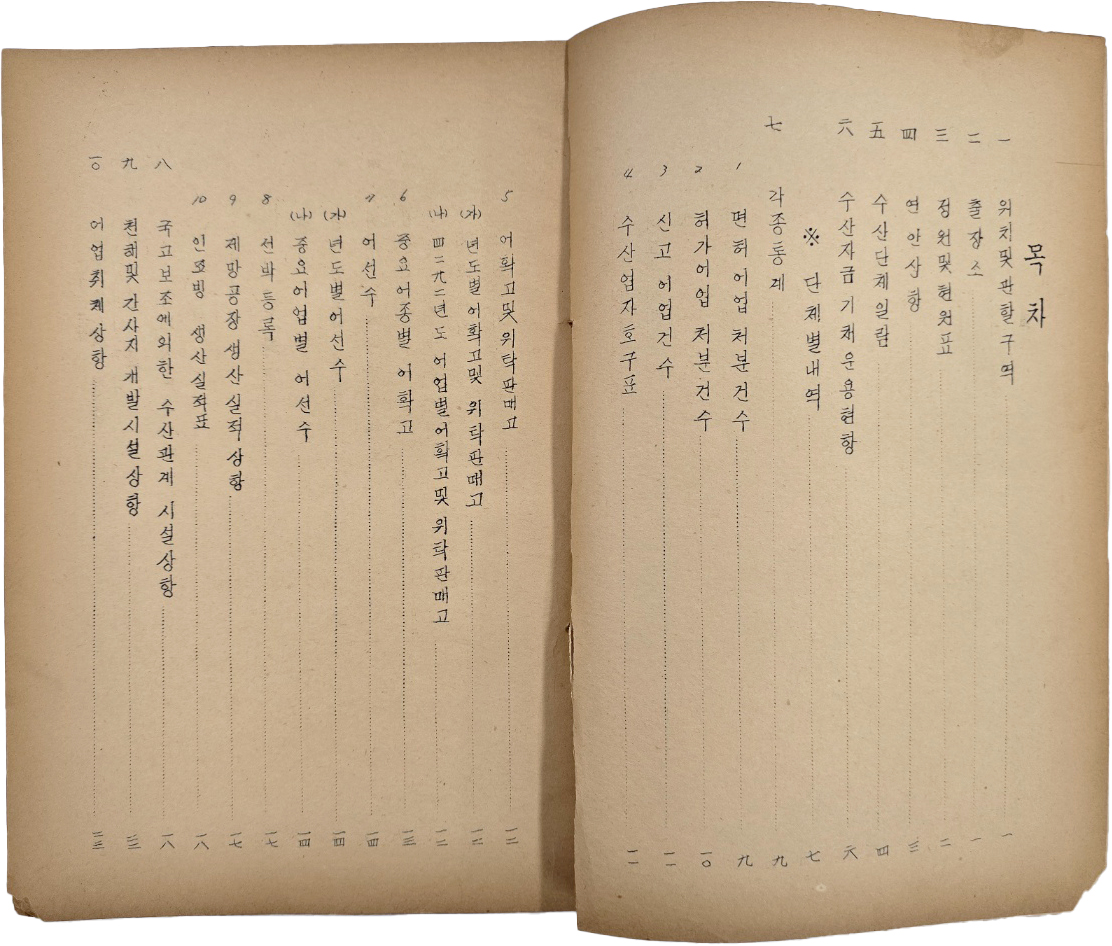 목차
一 위치및관할구역 一
二 출장소 一
三 정원및현원표 二
四 연안상황 三
五 수산단체일람 四
六 수산자금기채운용현황 六
※ 단체별내역 七
七 각종통계 九
1 면허어업 처분건수 九
2 허가어업 처분건수 一〇
3 신고어업건수 一一
4 수산업자호구표 一一
5 어획고및위탁판매고 一二
(가) 년도별 어획고및 위탁판매고 一二
(나) 四二九二년도 어업별어획고및 위탁판매고 一二
6 중요어종별 어획고 一三
7 어선수 一四
(가) 년도별어선수 一四
(나) 중요어업별 어선수 一四
8 선박등록 一七
9 제망공장 생산실적상황 一七
10 인조빙 생산실적표 一八
八 국고보조에의한 수산관계 시설상황 一八
九 천해및 간사지 개발시설상황
一〇 어업취체상황